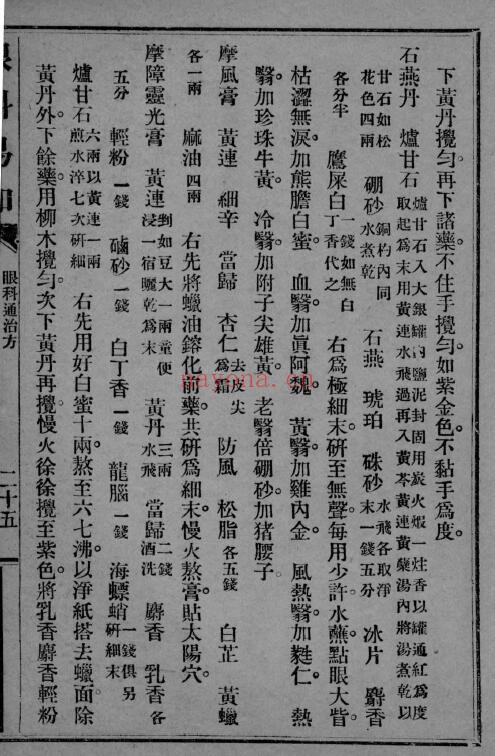 下黃丹攪勻。再下諸藥。不住手攪勻。如紫金色。不黏手爲度。
石燕丹　爐甘石爐甘石入大銀罐內鹽泥封固用炭火煅一炷香以罐通紅爲度取起爲末用黃連水飛過再入黃芩黃連黃蘗湯內將湯煮乾以
甘石如松花色四兩　硼砂銅杓內同水煮乾　石燕　琥珀　硃砂水飛各取淨末一錢五分　冰片　麝香
各分半　鷹屎白一錢如無白丁香代之　右爲極細末。研至無聲。每用少許。水蘸點眼大眥。
枯澀無淚。加熊膽白蜜。　血翳加眞阿魏。　黃翳加雞內金。　風熱翳加蕤仁。　熱
翳加珍珠牛黃。　冷翳加附子尖雄黃。　老翳倍硼砂加猪腰子。
摩風膏　黃連　細辛　當歸　杏仁去皮尖爲霜　防風　松脂各五錢　白芷　黃蠟
各一兩　麻油四兩　右先將蠟油鎔化。前藥共研爲細末。慢火熬膏。貼太陽穴。
摩障靈光膏　黃連剉如豆大一兩童便浸一宿曬乾爲末　黃丹三兩水飛　當歸二錢酒洗　麝香　乳香各
五分　輕粉一錢　硇砂一錢　白丁香一錢　龍腦一錢　海螵蛸一錢俱另研細末
爐甘石六兩以黃連一兩煎水淬七次研細　右先用好白蜜十兩。熬至六七沸。以淨紙搭去蠟面。除
黃丹外。下餘藥。用柳木攪勻。次下黃丹再攪。慢火徐徐攪至紫色。將乳香麝香輕粉
眼科通治方
二十五
nayona.cn